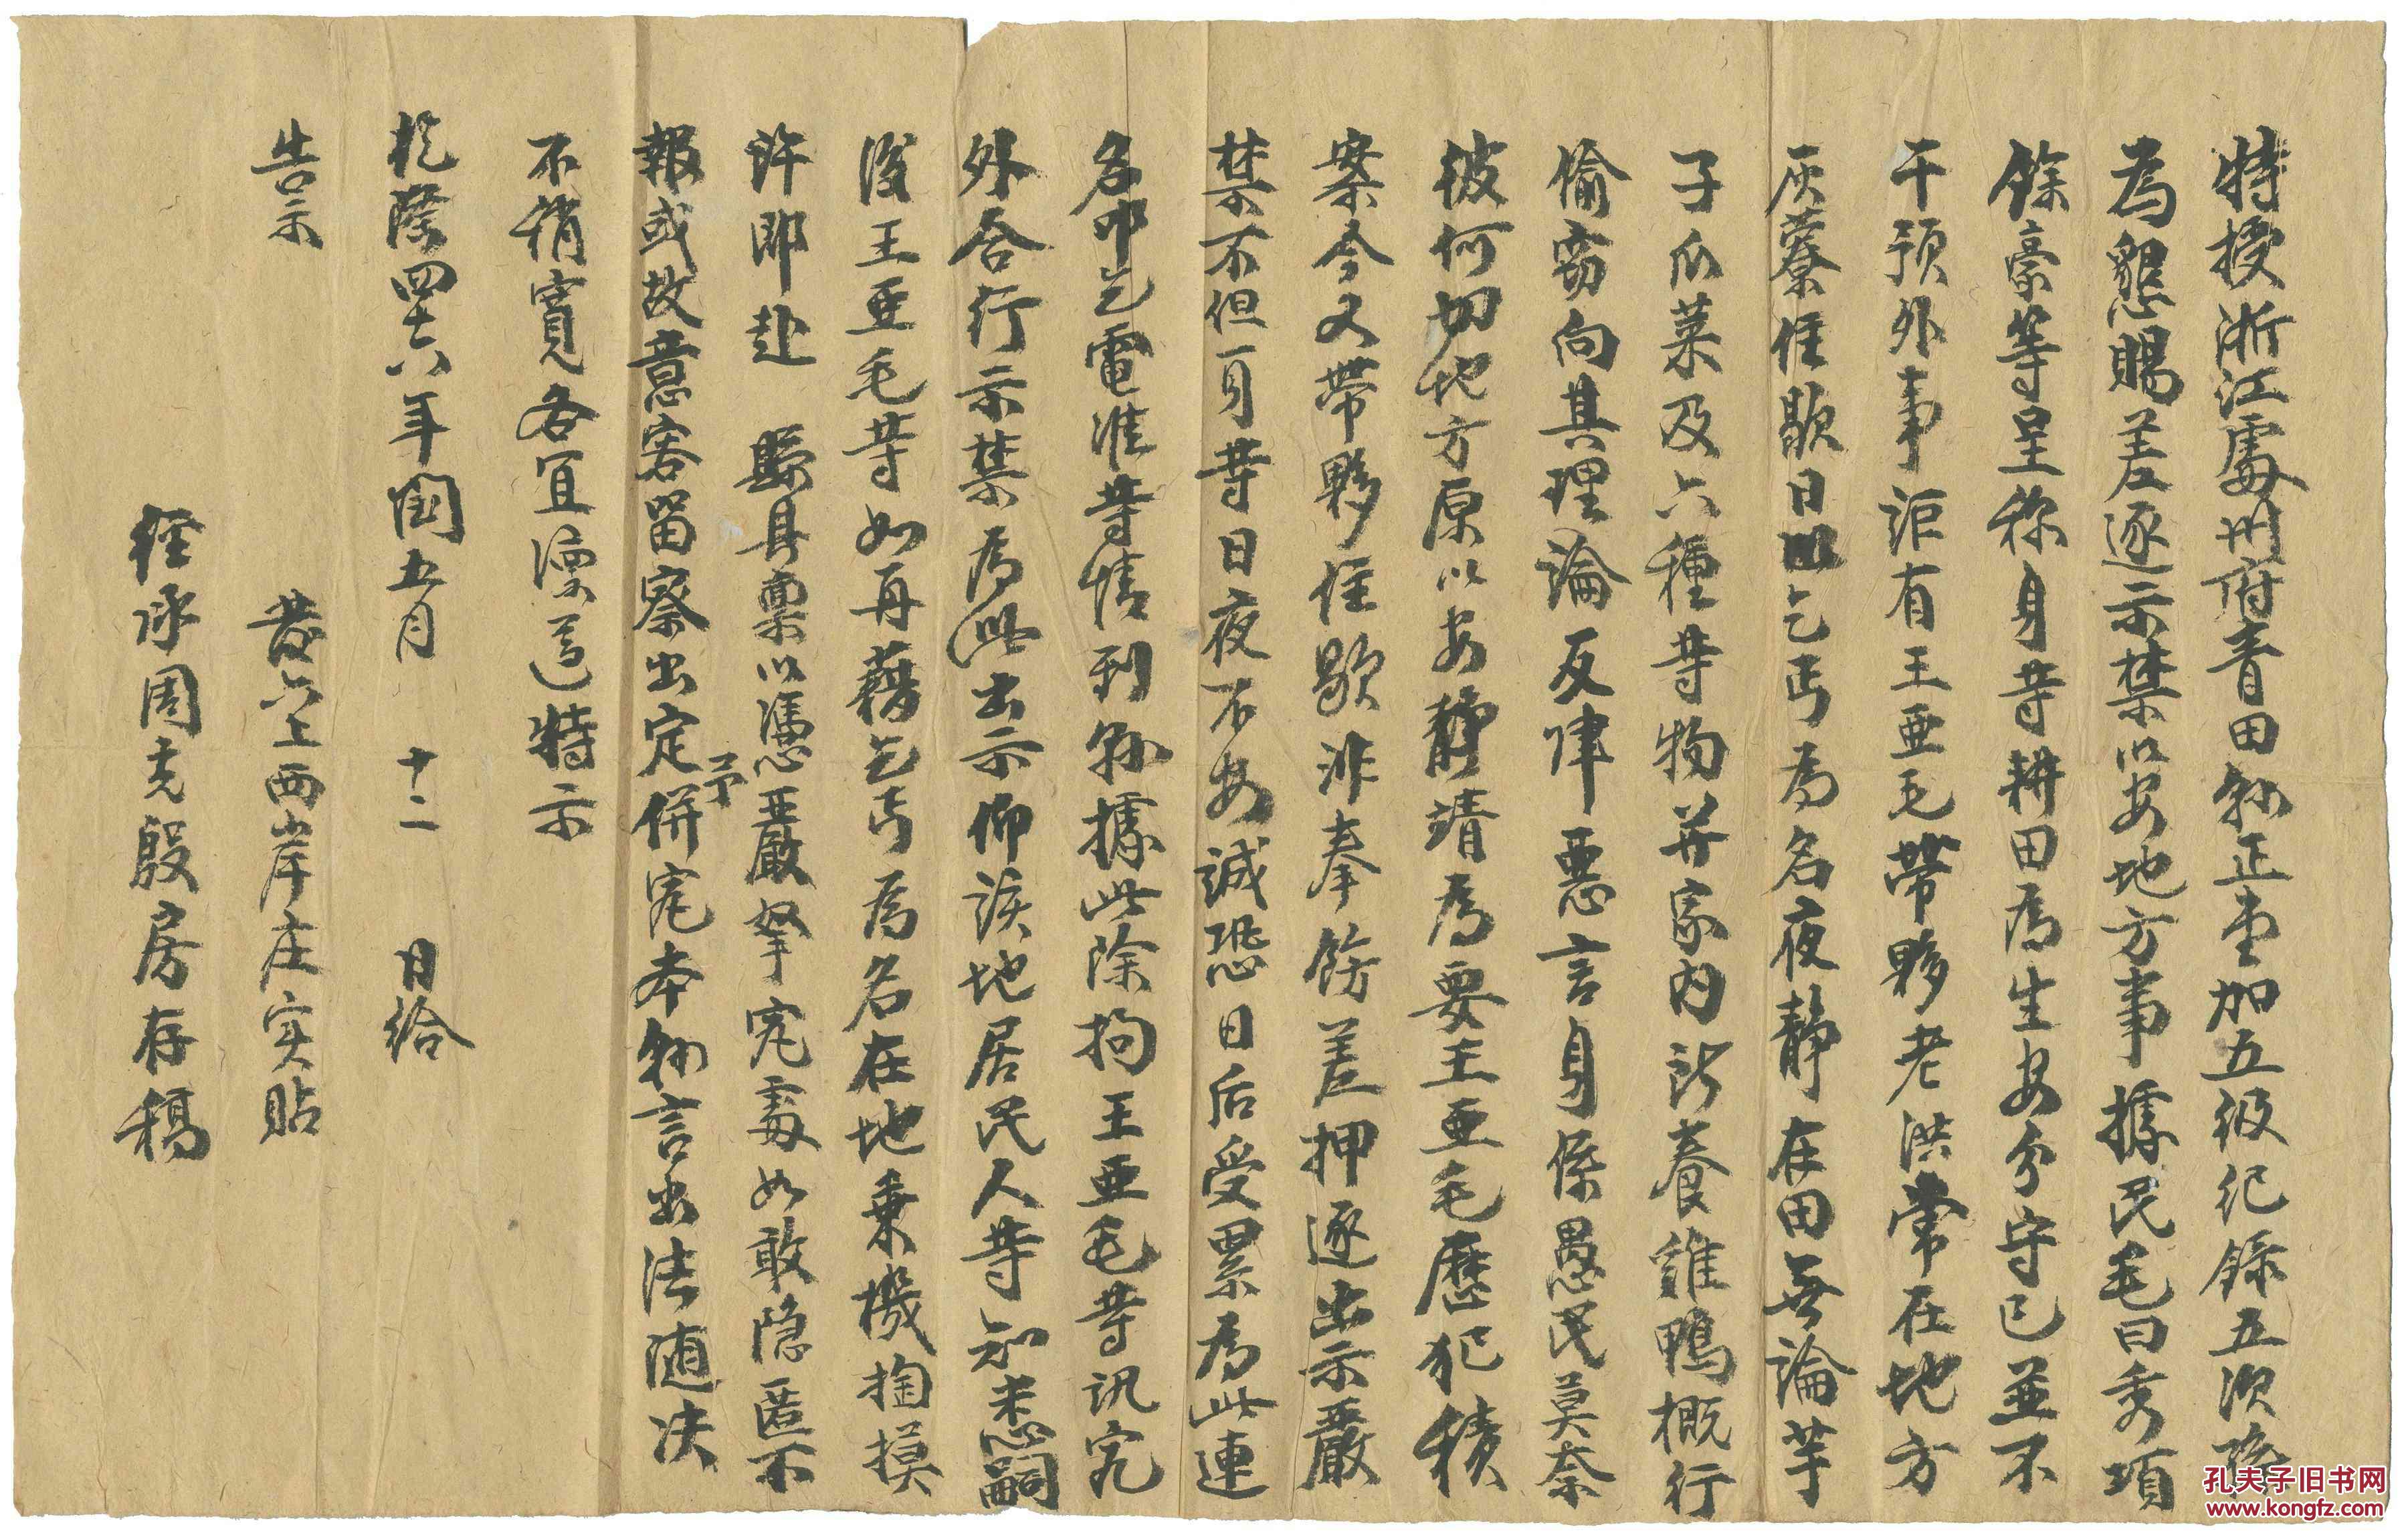 特授浙江處州府青田縣正堂加五級紀錄五次孫
為懇賜差逐示禁以安地方事據民毛日秀項
餘豪等呈称身等耕田為生安分守己並不
干預外事詎有王亜毛帶夥老洪常在地方
灰藔住歇日以乞丐為名夜静在田無論芋
子瓜菜及六種等物并家內所養雞鴨概行
偷窃向其理論反肆惡言身係愚民莫奈
彼何切地方原以安靜靖為要王亜毛歷犯積
案今又帶夥住歇非奉飭差押逐出示嚴
禁不但身等日夜不安誠恐日后受累為此連
名叩乞電准等情到縣據此除拘王亜毛等訊究
外合行示禁為此出示仰該地居民人等知悉嗣
後王亜毛等如再藉乞丐為名在地乘機掏摸
許即赴 縣具稟以憑嚴拏究處如敢隐匿不
報或故意客留察出定予併究本縣言出法随决
不稍寬各宜凛遵特示
乾隆四十六年閏五月 十二 日給
告示 發六上西岸庄实貼
經承周克殷房存稿
孔夫子旧书网
www.kongfz.com